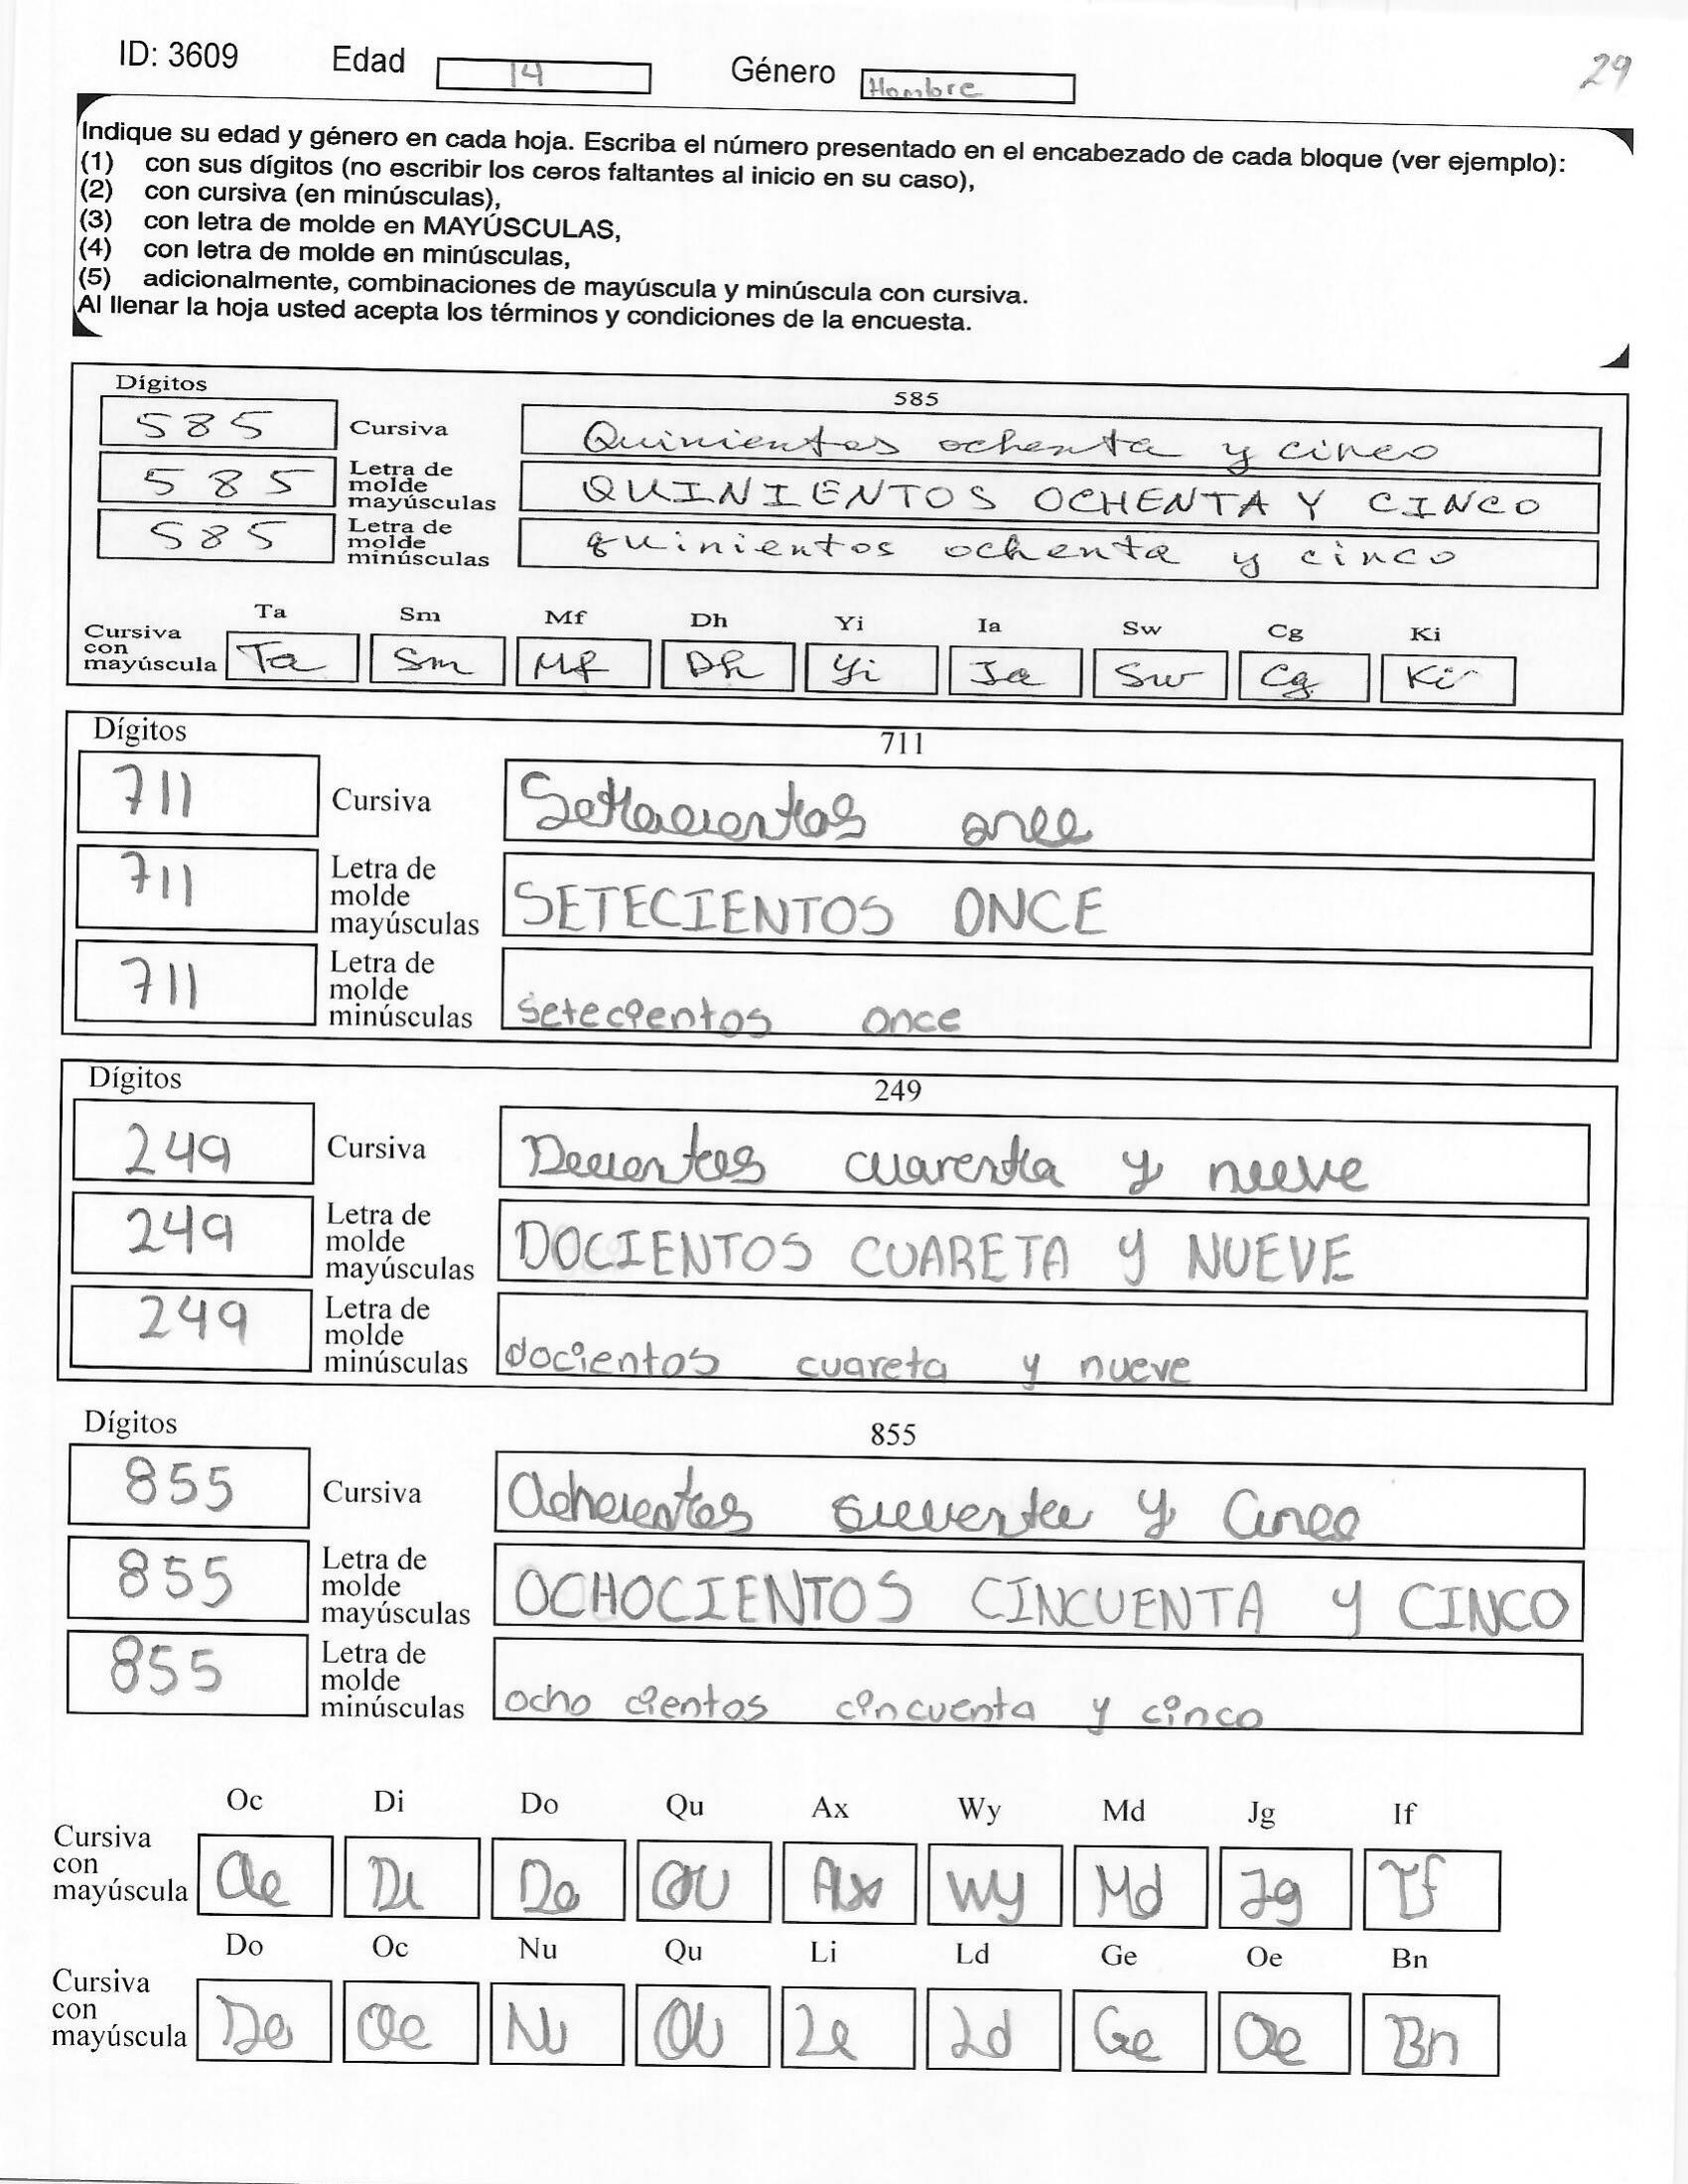 ID: 3609 Edad 14 Género Hombre 29
Indique su edad y género en cada hoja. Escriba el número presentado en el encabezado de cada bloque (ver ejemplo):
(1) con sus dígitos (no escribir los ceros faltantes al inicio en su caso),
(2) con cursiva (en minúsculas),
(3) con letra de molde en MAYÚSCULAS,
(4) con letra de molde en minúsculas,
(5) adicionalmente, combinaciones de mayúscula y minúscula con cursiva.
Al llenar la hoja usted acepta los términos y condiciones de la encuesta.
Dígitos 585
585 Cursiva Quinientos ochenta y cinco
585 Letra de molde mayúsculas QUINIENTOS OCHENTA Y CINCO
585 Letra de molde minúsculas quinientos ochenta y cinco
Ta Sm Mf Dh Yi Ia Sw Cg Ki
Cursiva con mayúscula Ta Sm Mf Dh Yi Ia Sw Cg Ki
Dígitos 711
711 Cursiva Setecientos once
711 Letra de molde mayúsculas SETECIENTOS ONCE
711 Letra de molde minúsculas setecientos once
Dígitos 249
249 Cursiva cuarenta y nueve
249 Letra de molde mayúsculas DOCIENTOS CUARETA y NUEVE
249 Letra de molde minúsculas docientos cuareta y nueve
Dígitos 855
855 Cursiva Ochocientos y Cinco
855 Letra de molde mayúsculas OCHOCIENTOS CINCUENTA y CINCO
855 Letra de molde minúsculas ocho cientos cincuenta y cinco
Oc Di Do Qu Ax Wy Md Jg If
Cursiva con mayúscula Oc Di Do Qu Ax Wy Md Jg If
Do Oc Nu Qu Li Ld Ge Oe Bn
Cursiva con mayúscula Do Oc Nu Qu Li Ld Ge Oe Bn